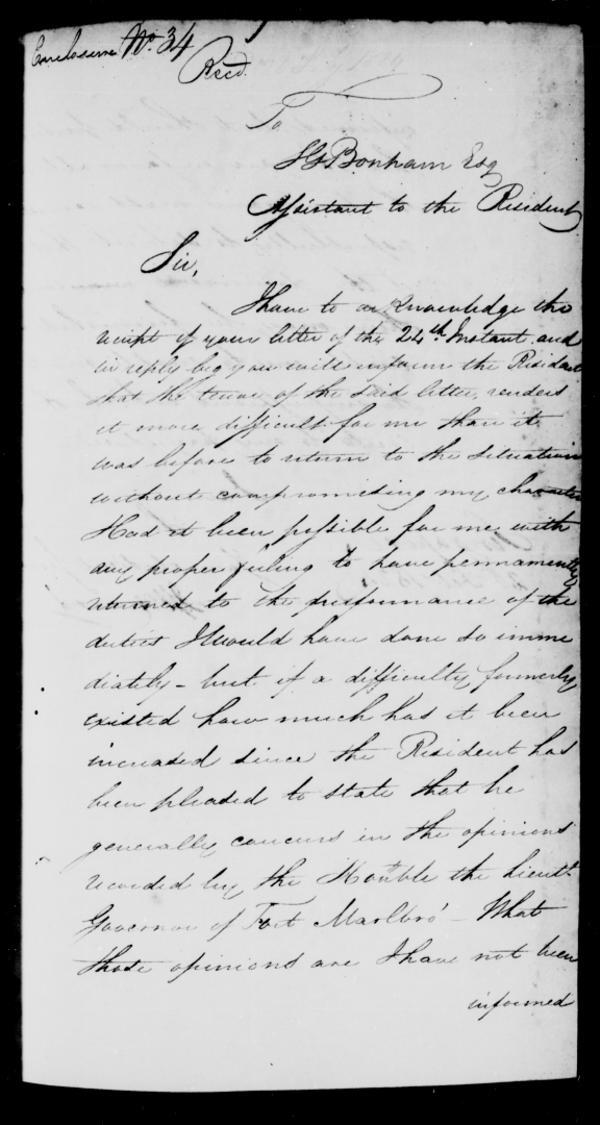 Enclosure No. 34
Recd.
To
S G Bonham Esq
Assistant to the Resident
Sir,
I have to acknowledge the
receipt of your letter of the 24th Instant. and
in reply beg you will inform the Resident
that the tenor of the said letter, renders
it more difficult for me than it
was before to return to the situation
without compromising my character
Had it been possible for me with
any proper feeling to have permanently
returned to the performance of the
duties I would have done so imme
diately - but if a difficulty formerly
existed how much has it been
increased since the Resident has
been pleased to state that he
generally concurs in the opinions
recorded by the Honble the Lieut.
Governor of Fort Marlbro' - What
those opinions are I have not been
informed